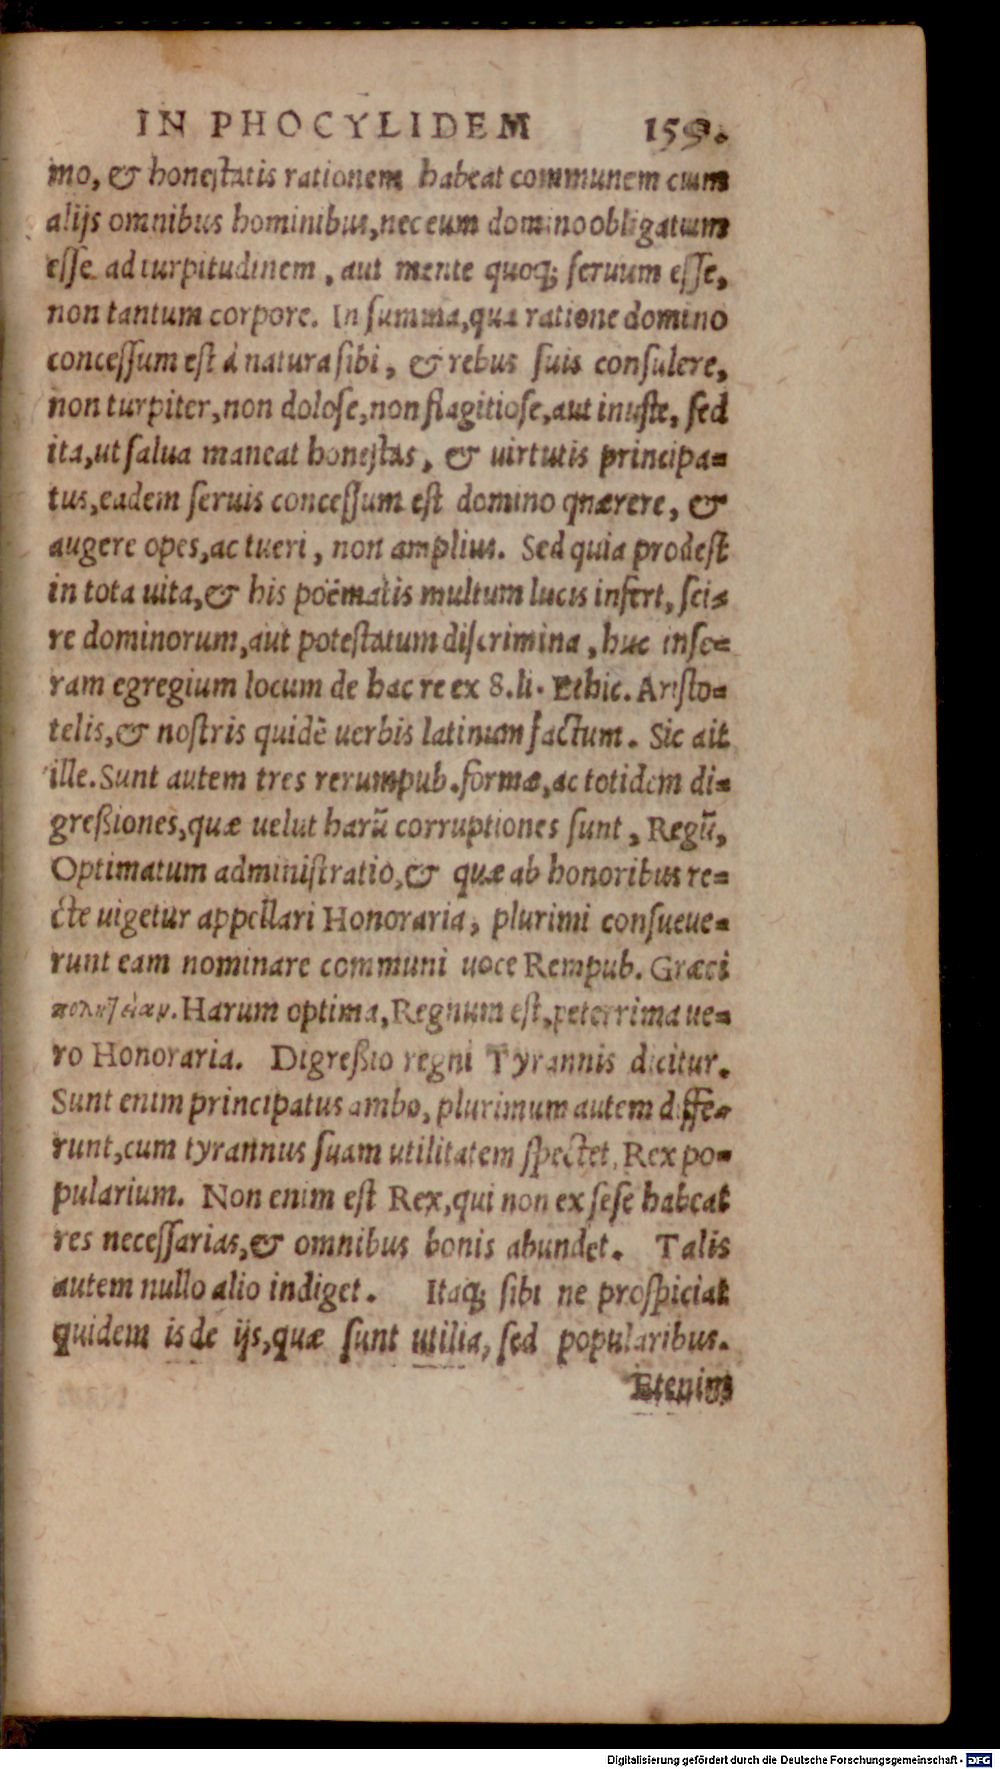 IN PHOCYLIDEM 159.
mo, & honeſtatis rationem habeat communem cum
alijs omnibus hominibus, nec eum domino obligatum
eſſe ad turpitudinem, aut mente quoq; ſeruum eſſe,
non tantum corpore. In ſumma, qua ratione domino
conceſſum eſt à natura ſibi, & rebus ſuis conſulere,
non turpiter, non doloſe, non flagitioſe, aut iniuſte, ſed
ita, ut ſalua maneat honeſtas, & uirtutis principa=
tus, eadem ſeruis conceſſum eſt domino quærere, &
augere opes, ac tueri, non amplius. Sed quia prodeſt
in tota uita, & his poëmatis multum lucis infert, ſci=
re dominorum, aut poteſtatum diſcrimina, huc inſe=
ram egregium locum de hac re ex 8. li. Ethic. Ariſto=
telis, & noſtris quidē uerbis latinum factum. Sic ait
ille. Sunt autem tres rerumpub. formæ, ac totidem di=
greßiones, quæ uelut harū corruptiones ſunt, Regū,
Optimatum adminiſtratio, & quæ ab honoribus re=
cte uigetur appellari Honoraria, plurimi conſueue=
runt eam nominare communi uoce Rempub. Græci
πολιτείαν. Harum optima, Regnum eſt, peterrima ue=
ro Honoraria. Digreßio regni Tyrannis dicitur.
Sunt enim principatus ambo, plurimum autem diffe=
runt, cum tyrannus ſuam utilitatem ſpectet, Rex po=
pularium. Non enim eſt Rex, qui non ex ſeſe habeat
res neceſſarias, & omnibus bonis abundet. Talis
autem nullo alio indiget. Itaq; ſibi ne proſpiciat
quidem is de ijs, quæ ſunt utilia, ſed popularibus.
Etenim
Digitalisierung gefördert durch die Deutsche Forschungsgemeinschaft - DFG